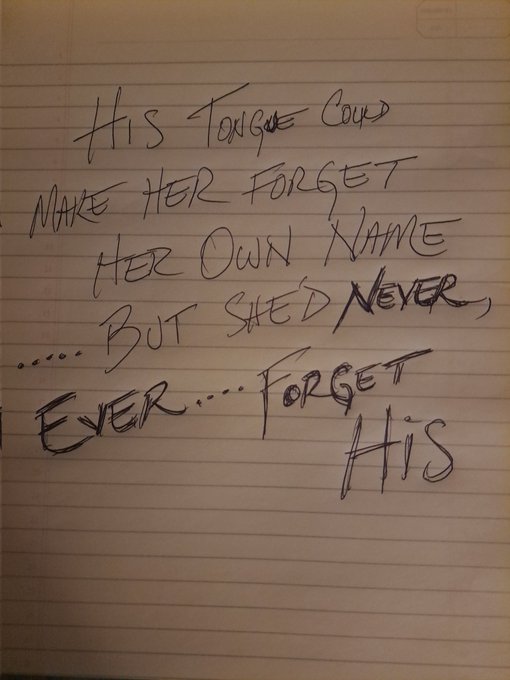 His Tongue Could
Make Her Forget
Her Own Name
..... But She'd Never,
Ever.... Forget
His